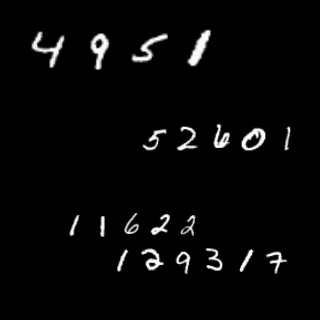 4951
52601
11622
129317